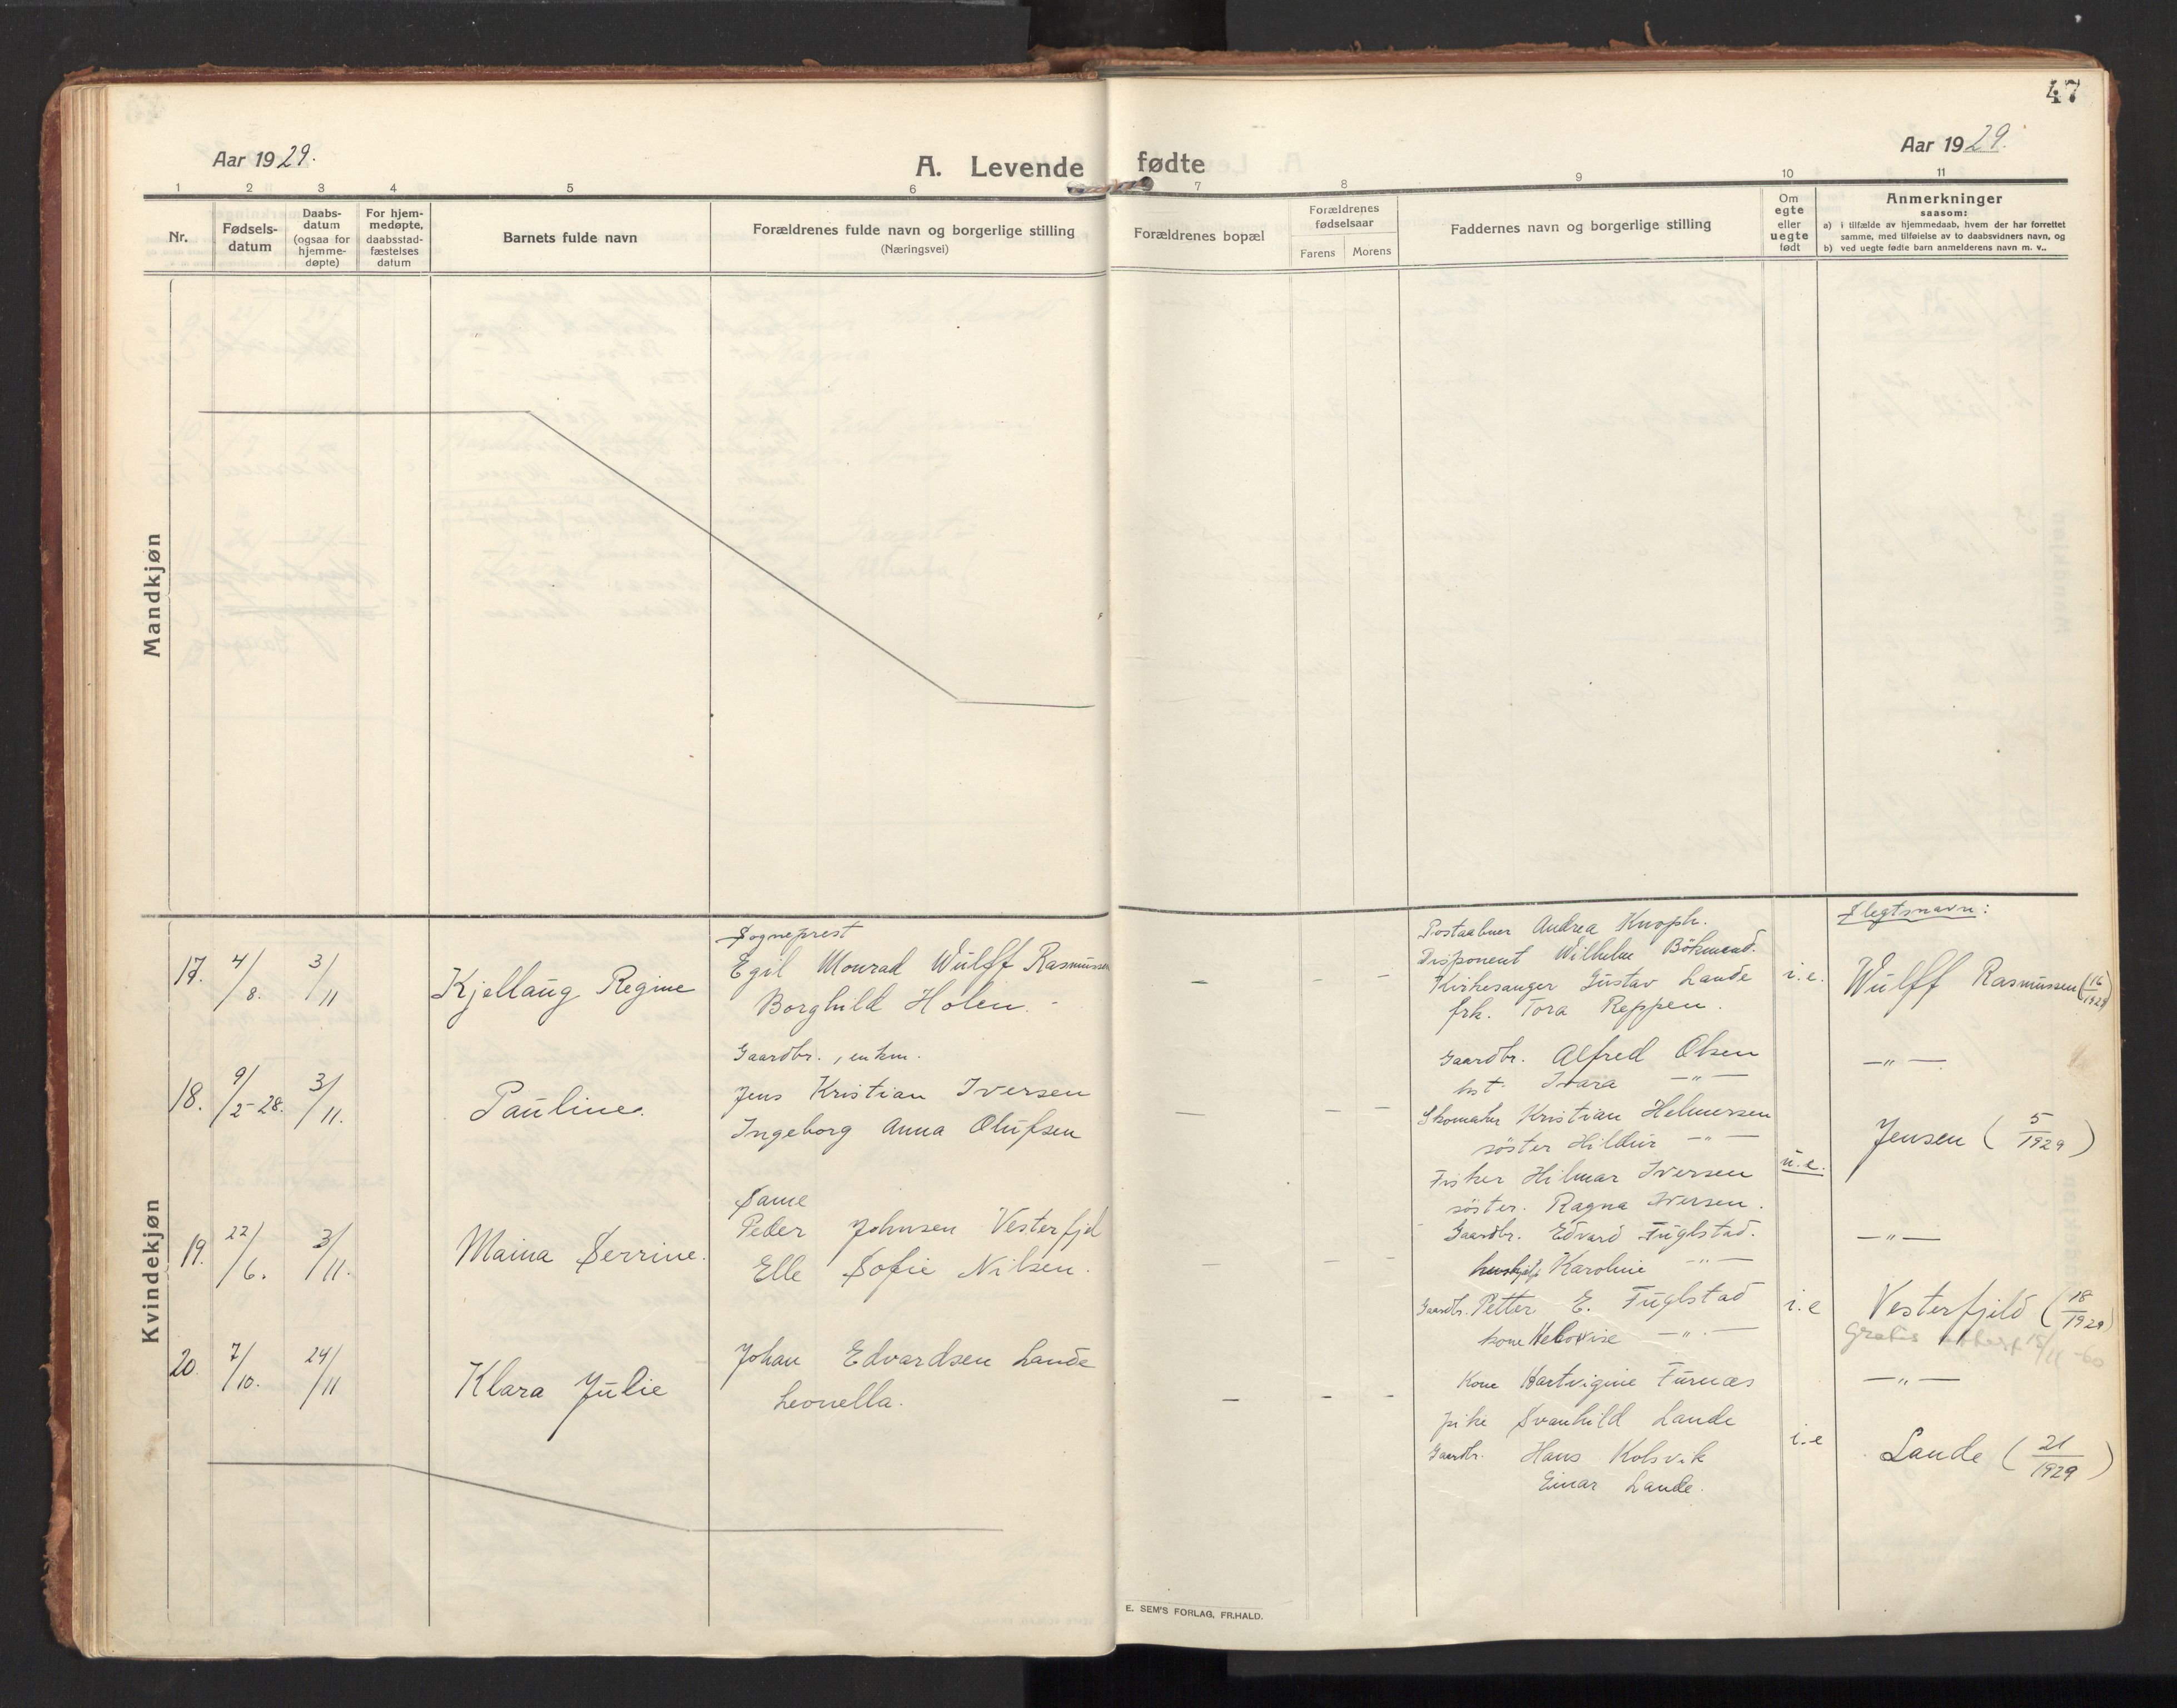 47
Aar 1929.
A. Levende fødte
Aar 1929.
1 2 3 4 5 6 7 8 9 10 11
Nr.
Fødsels-
datum
Daabs-
datum
(ogsaa for
hjemme-
døpte)
For hjem-
medøpte,
daabsstad-
fæstelses
datum
Barnets fulde navn
Forældrenes fulde navn og borgerlige stilling
(Næringsvei)
Forældrenes bopæl
Forældrenes
fødselsaar
Farens Morens
Faddernes navn og borgerlige stilling
Om
egte
eller
uegte
født
Anmerkninger
saasom:
a) i tilfælde av hjemmedaab, hvem der har forrettet
samme, med tilføielse av to daabsvidners navn, og
b) ved uegte fødte barn anmelderens navn m. v..
Mandkjøn
Kvindekjøn
17. 4/8. 3/11
Kjellaug Regine
Sogneprest
Egil Monrad Wulff Rasmussen
Borghild Holen.
— — —
Postaabner Andrea Knoph.
Disponent Wilhelm Bökmand.
Kirkesanger Gustav Lande
frk. Tora Reppen.
i.e.
Slegtsnavn:
Wulff Rasmussen (16/1929)
18. 9/2-28. 3/11.
Pauline.
Gaardbr., enkm.
Jens Kristian Iversen
Ingeborg Anna Olufsen
— — —
Gaardbr. Alfred Olsen
hst. Ivara —"—
Skomaker Kristian Helmersen
söster Hildur —"—
Fisker Hilmar Iversen
söster. Ragna Iversen.
u.e.
—"—
Jensen (5/1929)
19. 22/6. 3/11.
Maina Serrine.
Same
Peder Johnsen Vesterfjel
Elle Sofie Nilsen.
— — —
Gaardbr. Edvard Fuglstad.
Karoline —"—
Gaardbr. Petter E. Fuglstad
kone —"—
i.e
—"—
Vesterfjeld (18/1929)
Gratis attest 15/11-60
20. 7/10. 24/11
Klara Julie
Johan Edvardsen Lande
Leonella.
— — —
Kone Hartvigine Furnæs
pike Svanhild Lande
Gaardbr. Hans Kolsvik
Einar Lande.
i.e
—"—
Lande (21/1929)
E. SEM'S FORLAG, FR.HALD.